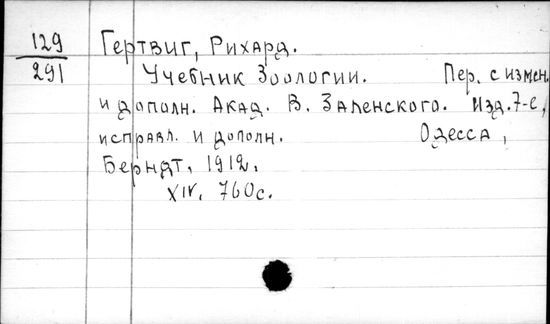 129
291
Гертвиг, Рихард.
Учебник Зоологии. Пер. с измен.
и дополн. Акад. В. Заленского. Изд. 7-е,
исправл. и дополн. Одесса,
Берндт, 1912.
XIV. 760с.